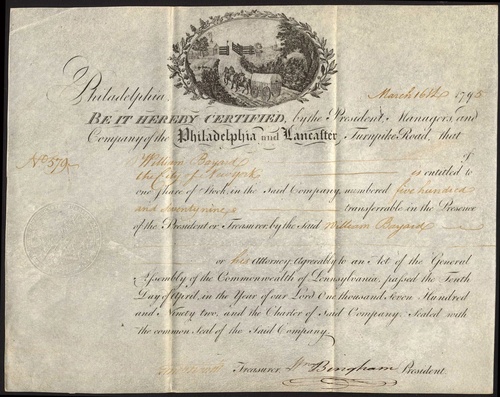 Philadelphia March 16th 1795
BE IT HEREBY CERTIFIED, by the President Managers, and
Company of the Philadelphia and Lancaster Turnpike Road, that
No 579 William Bayard of
the City of New york is entitled to
one Share of Stock, in the Said Company, numbered five hundred
and Seventy nine transferrable in the Presence
of the President or Treasurer, by the Said William Bayard
or his Attorney, Agreeably to an Act of the General
Assembly of the Commonwealth of Pennsylvania, passed the Tenth
Day of April, in the Year of our Lord One thousand, Seven Hundred
and Ninety two, and the Charter of Said Company. Sealed with
the common Seal of the Said Company.
Treasurer, Wm Bingham President.